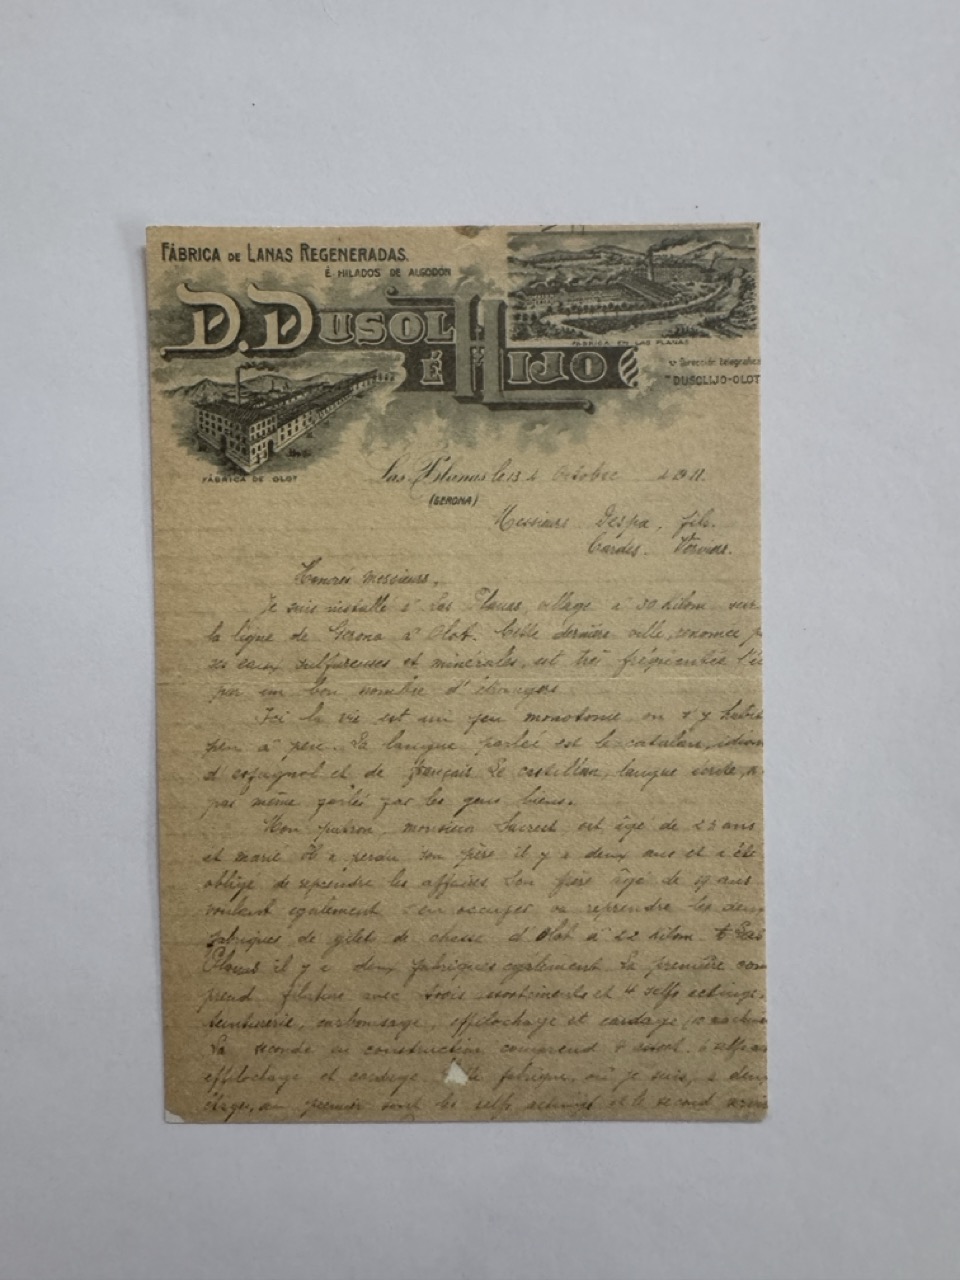 FÁBRICA DE LANAS REGENERADAS.
É HILADOS DE ALGODÓN
D. DUSOL
É HIJO
FÁBRICA EN LAS PLANAS
Dirección telegráfica
"DUSOLIJO-OLOT
FÁBRICA DE OLOT
Las Planas le 13 d Octobre 1911.
(GERONA)
Messieurs Despa, fils.
Cardes. Verviers.
Honorés messieurs,
Je suis installé à Las Planas, village à 30 kilom sur
la ligne de Gerona à Olot. Cette dernière ville, renomée p
ses eaux sulfureuses et minérales, est très fréquentée l'é
par un bon nombre d'étrangers
Ici la vie est un peu monotone on s'y habit
peu à peu. La langue parlée est le catalan, idiom
d'espagnol et de français Le castillan, langue écrite, n
pas même parlés par les gens biens.
Mon patron, monsieur Sacrest est âgé de 23 ans
et marié il a perdu son père il y a deux ans et a été
obligé de reprendre les affaires Son frère âgé de 19 ans
voulant egalement s'en occuper va reprendre les deux
fabriques de gilets de chasse d'Olot à 22 kilom. à Las
Planas il y a deux fabriques egalement La première com
prend filature avec trois assortiments et 4 selfs actings,
teinturerie, carbonisage, effilochage et cardage (10 machine
La seconde en construction comprend
effilochage et cardage. fabrique, où je suis, a deux
étages, au premier sont les selfs actings et le second